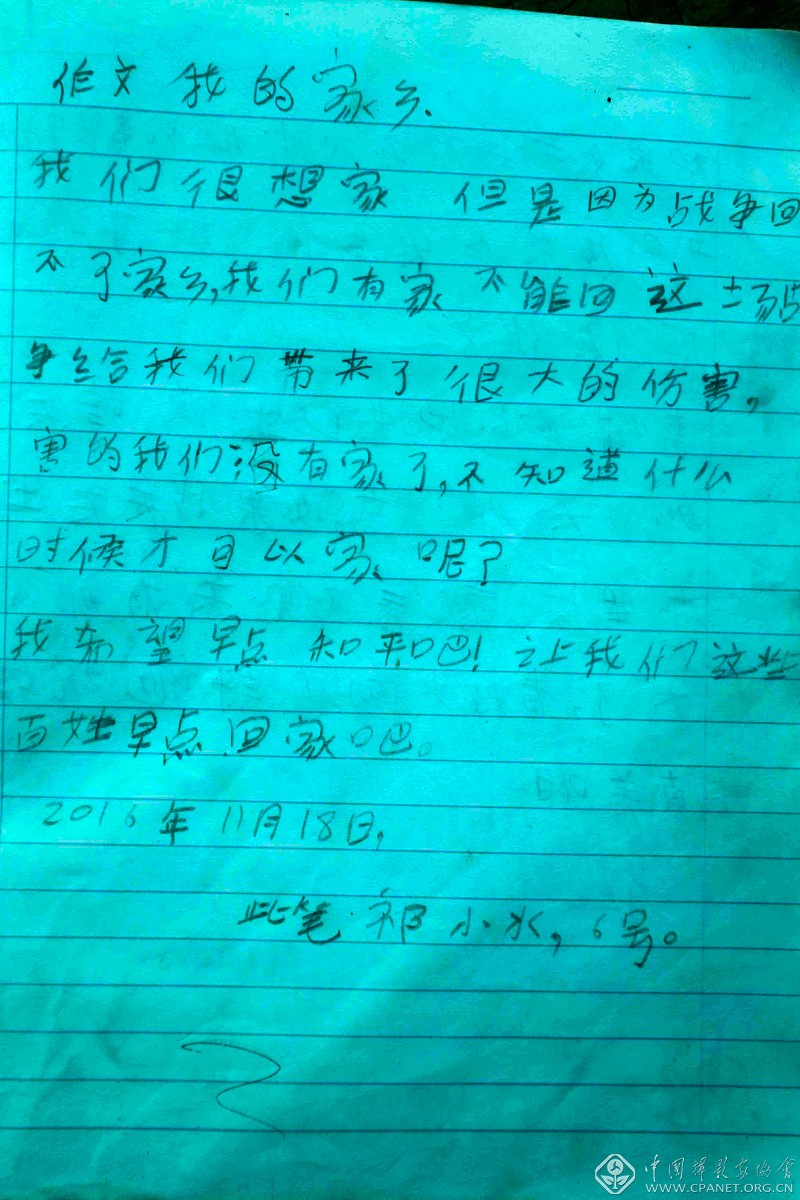 作文 我的家乡.
我们很想家 但是因为战争回
不了家乡,我们有家 不能回 这一场战
争给我们带来了很大的伤害,
害的我们没有家了,不知道什么
时候才可以家呢了
我希望早点 知和吧! 让我们这些
百姓早点回家吧。
2016年11月18日,
此笔 祁小水, 6号。
中国摄影家协会
WWW.CPANET.ORG.CN